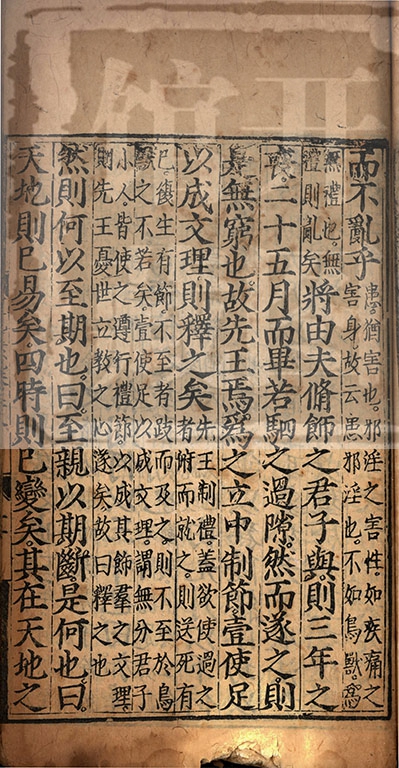 而不亂乎患猶害也。邪淫之害性。如疾痛之
害身。故云患邪淫也。不如鳥獸。爲
無禮也。無
禮則亂矣將由夫脩飾之君子與則三年之
喪二十五月而畢若駟之過隙然而遂之則
是無窮也。故先王焉爲之立中制節壹使足
以成文理則釋之矣先王制禮。蓋欲使過之
者俯而就之。則送死有
已。復生有節。不至者跂而及之。則不至於鳥
獸之不若矣。壹使足以成文理。謂無分君子
小人。皆使之遵行禮節。以成其飾羣之文理。
則先王憂世立教之心遂矣。故曰釋之也
然則何以至期也。曰至親以期斷。是何也。曰
天地則已易矣四時則已變矣其在天地之